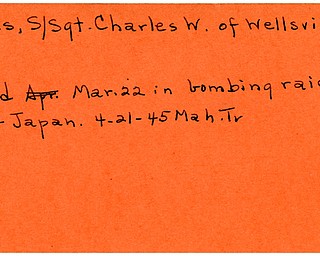 s, S/Sgt. Charles W. of Wellsvi
d Apr. Mar. 22 in bombing raid
- Japan. 4-21-45 Mah. Tr